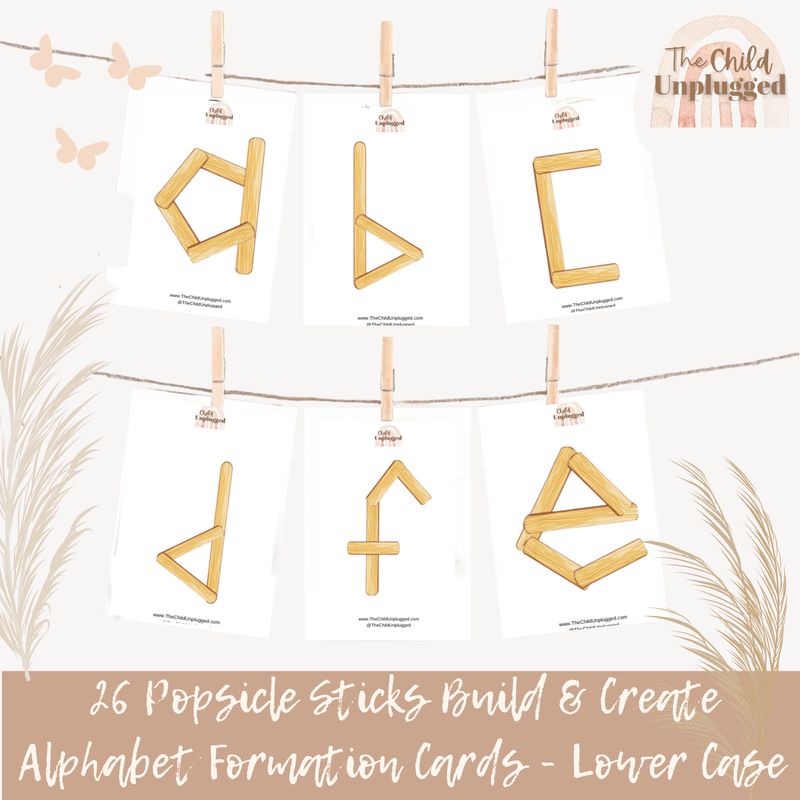 The Child
Unplugged
Child
Unplugged
Child
Unplugged
Child
Unplugged
a
b
c
www.TheChildUnplugged.com
@TheChildUnplugged
www.TheChildUnplugged.com
@TheChildUnplugged
www.TheChildUnplugged.com
@TheChildUnplugged
Child
Unplugged
Child
Unplugged
Child
Unplugged
d
f
e
www.TheChildUnplugged.com
www.TheChildUnplugged.com
@TheChildUnplugged
www.TheChildUnplugged.com
@TheChildUnplugged
26 Popsicle Sticks Build & Create
Alphabet Formation Cards - Lower Case